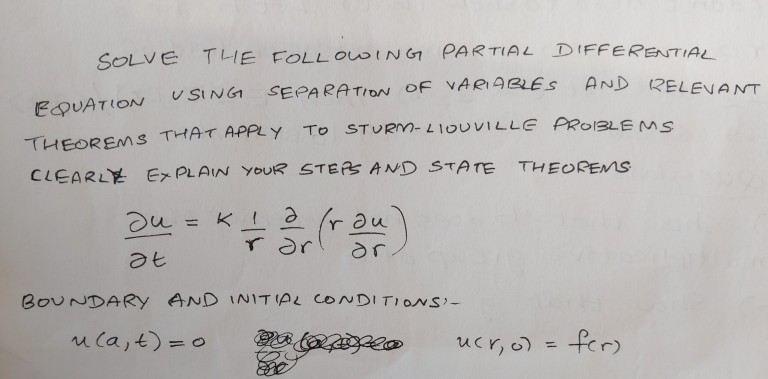 SOLVE THE FOLLOWING PARTIAL DIFFERENTIAL
EQUATION USING SEPARATION OF VARIABLES AND RELEVANT
THEOREMS THAT APPLY TO STURM-LIOUVILLE PROBLEMS
CLEARLY EXPLAIN YOUR STEPS AND STATE THEOREMS
∂u/∂t = K 1/r ∂/∂r (r ∂u/∂r)
BOUNDARY AND INITIAL CONDITIONS:-
u(a,t)=0 u(r,0) = f(r)